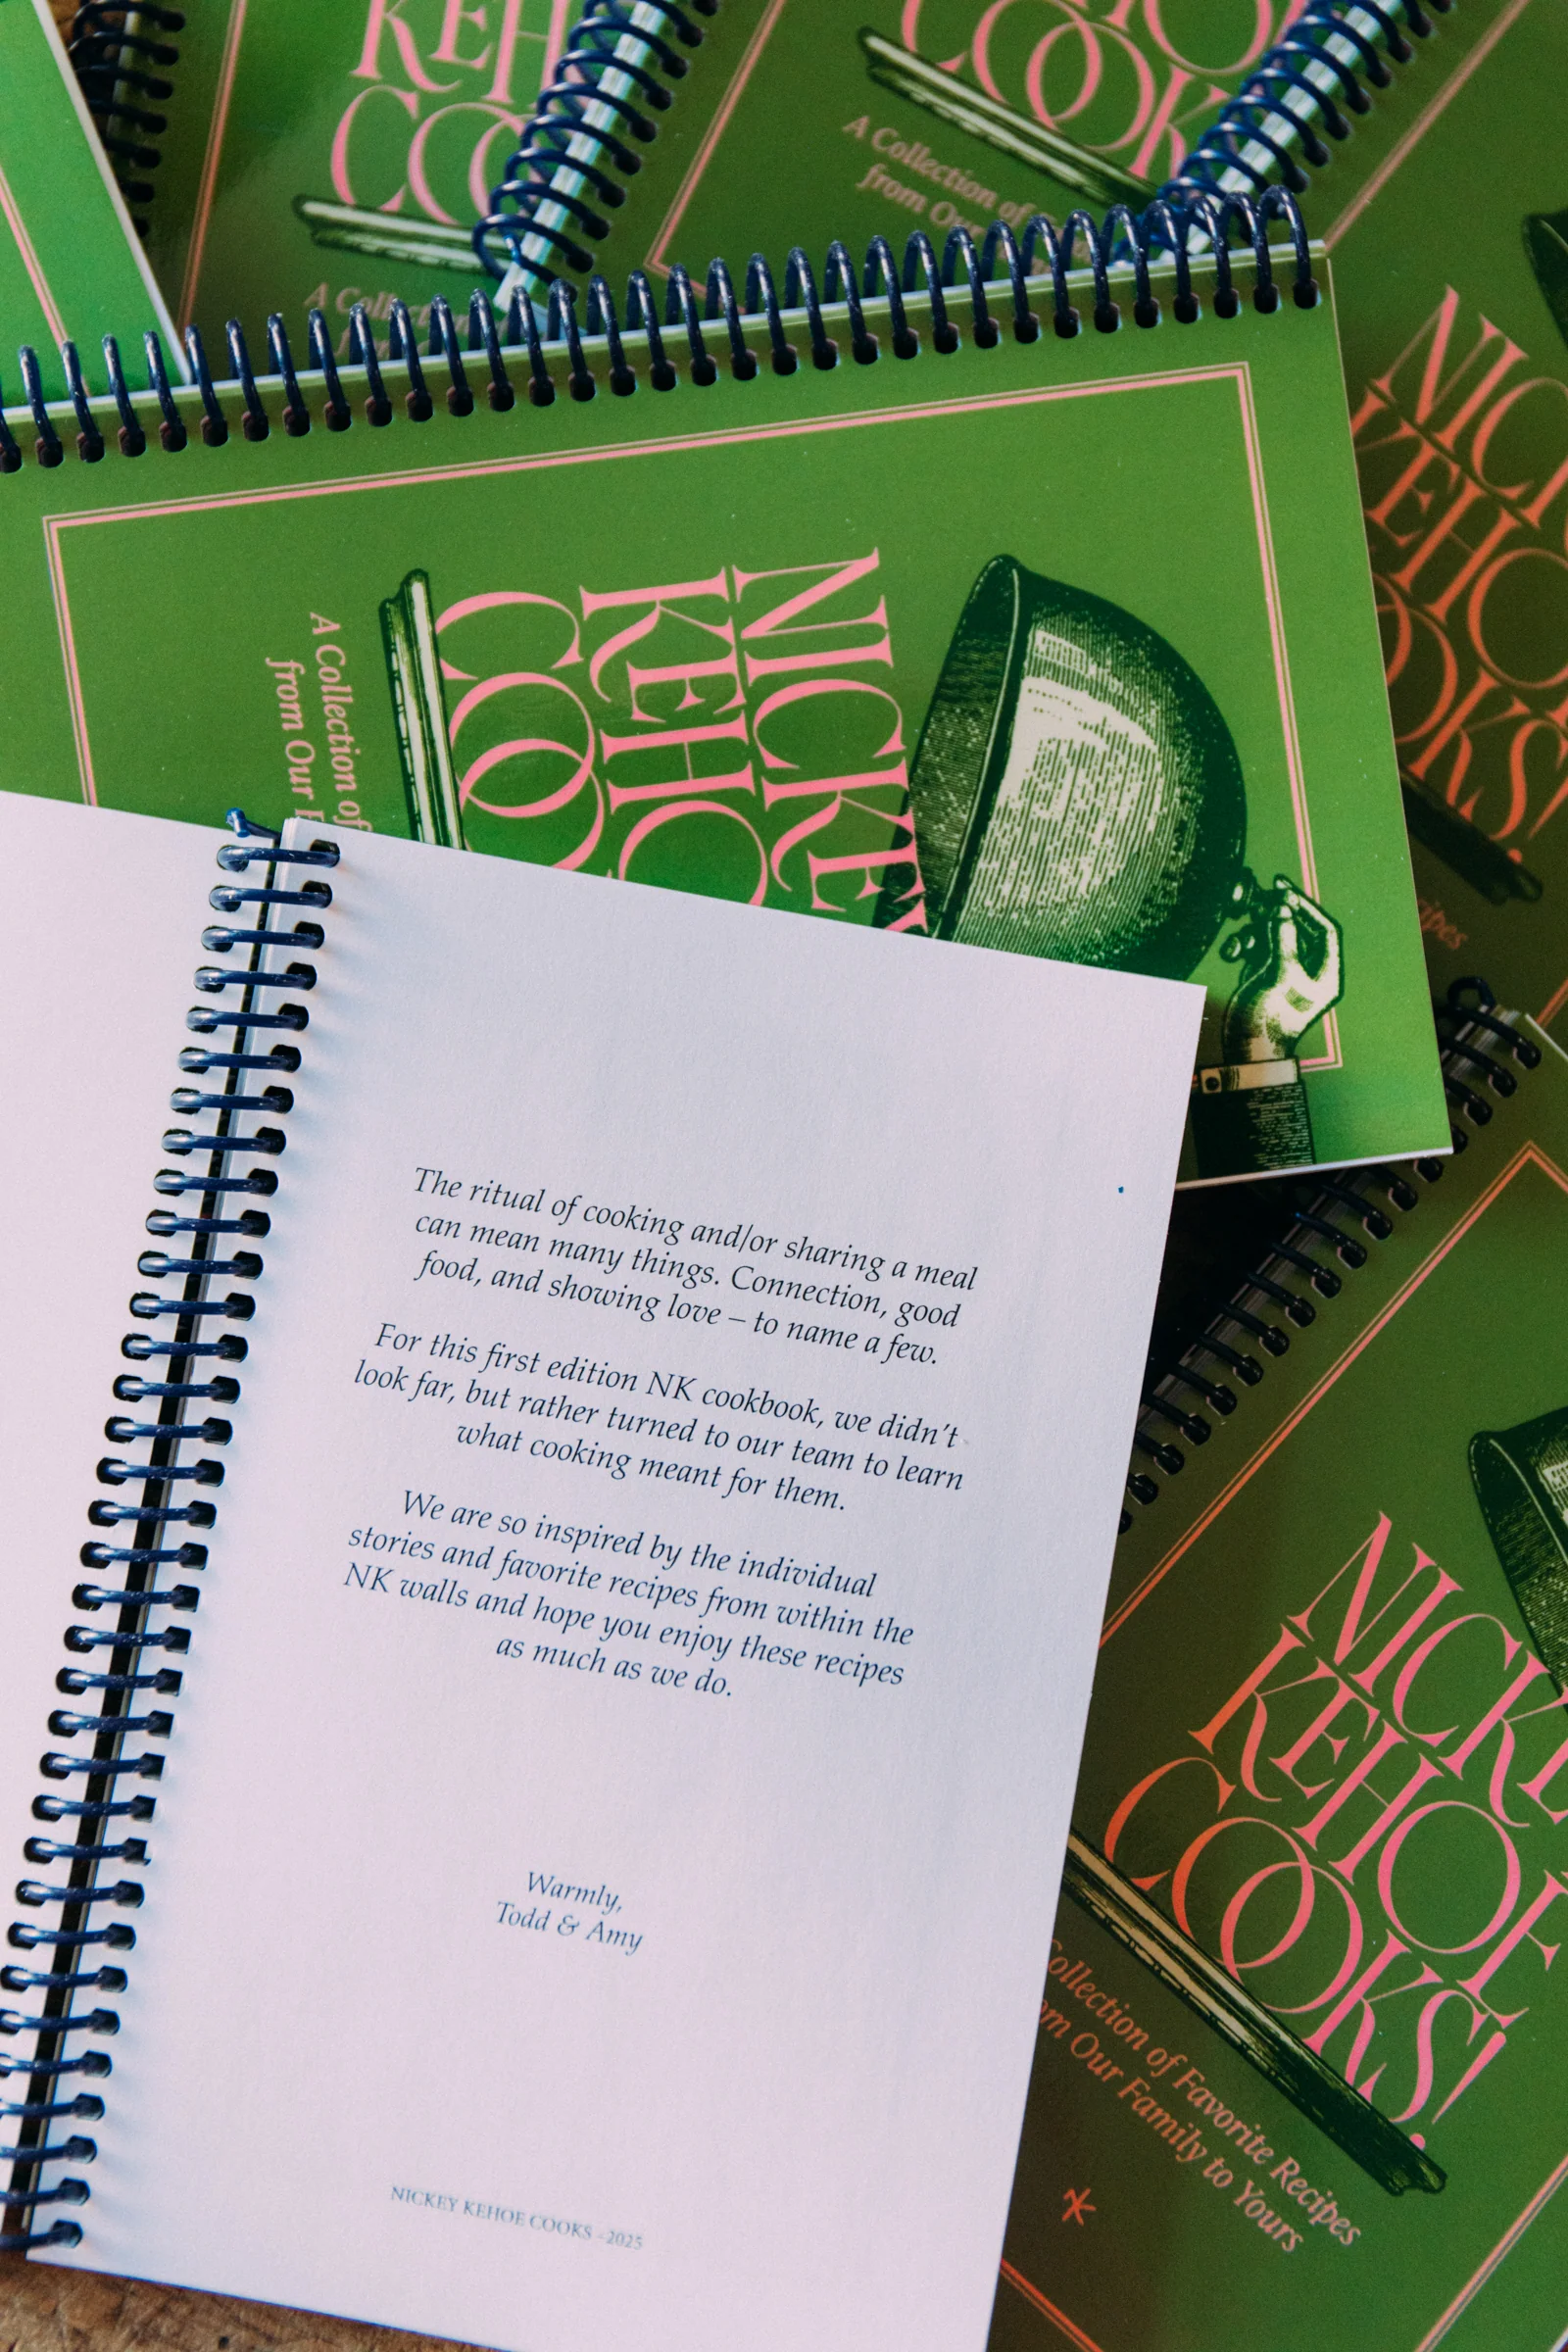 KEH
CO
A Collection
COOK
A Collection of
from Our
NICKEY
KEHO
COO
A Collection of
from Our F
NICK
KEHO
OOKS!
ipes
The ritual of cooking and/or sharing a meal
can mean many things. Connection, good
food, and showing love – to name a few.
For this first edition NK cookbook, we didn't
look far, but rather turned to our team to learn
what cooking meant for them.
We are so inspired by the individual
stories and favorite recipes from within the
NK walls and hope you enjoy these recipes
as much as we do.
Warmly,
Todd & Amy
NICKEY KEHOE COOKS –2025
NICKE
KEHOE
COOKS!
Collection of Favorite Recipes
om Our Family to Yours